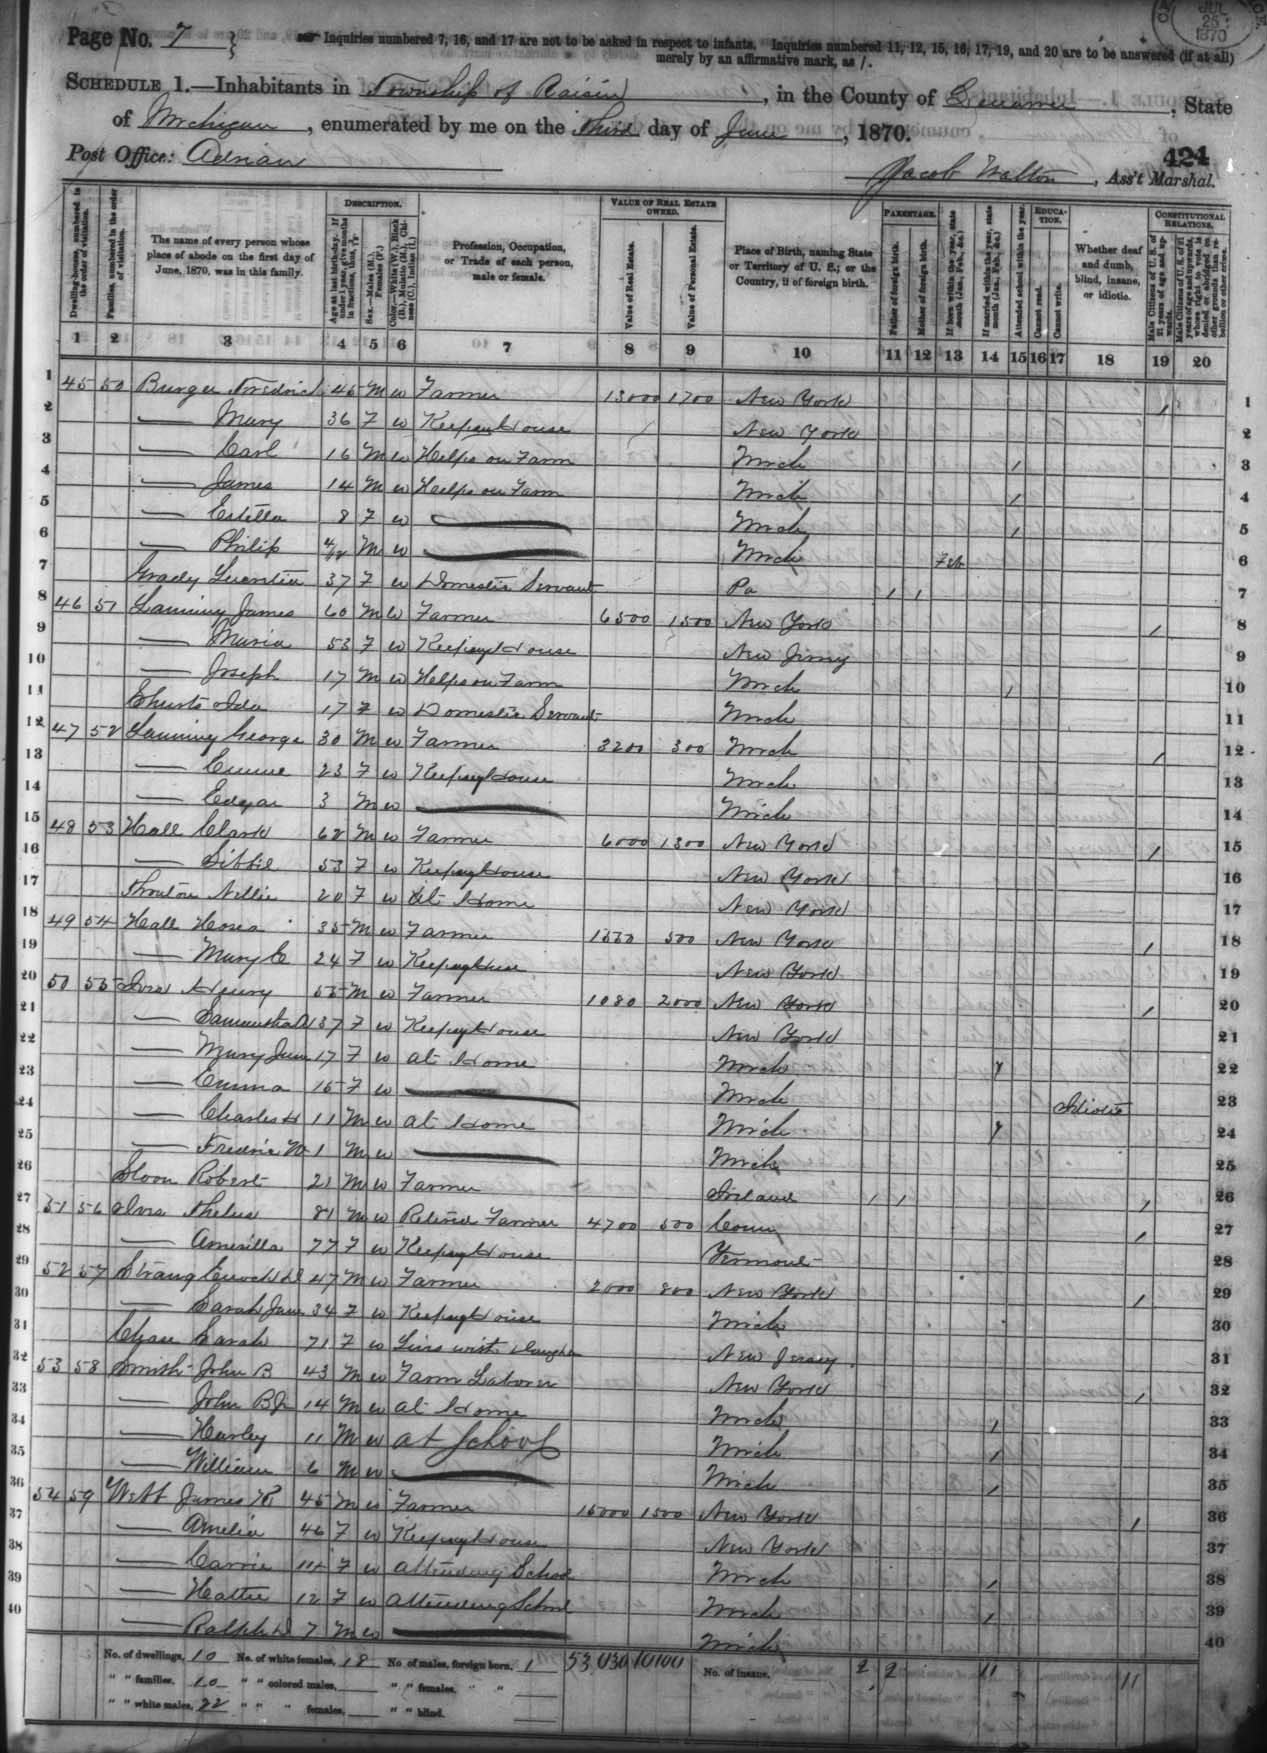 JUL 25 1870
Page No. 7
Inquiries numbered 7, 16, and 17 are not to be asked in respect to infants. Inquiries numbered 11, 12, 15, 16, 17, 19, and 20 are to be answered (if at all)
merely by an affirmative mark, as /.
SCHEDULE 1.—Inhabitants in Township of Raisin, in the County of Lenawee, State
of Michigan, enumerated by me on the Third day of June, 1870.
424
Post Office: Adrian
Jacob Walton, Ass't Marshal.
DESCRIPTION. VALUE OF REAL ESTATE OWNED. PARENTAGE. EDUCATION. CONSTITUTIONAL RELATIONS.
Dwelling-houses, numbered in the order of visitation.
Families, numbered in the order of visitation.
The name of every person whose place of abode on the first day of June, 1870, was in this family.
Age at last birthday. If under 1 year, give months in fractions, thus, 3/12
Sex.—Males (M.), Females (F.)
Color.—White (W.), Black (B.), Mulatto (M.), Chinese (C.), Indian (I.)
Profession, Occupation, or Trade of each person, male or female.
Value of Real Estate.
Value of Personal Estate.
Place of Birth, naming State or Territory of U. S.; or the Country, if of foreign birth.
Father of foreign birth.
Mother of foreign birth.
If born within the year, state month (Jan., Feb., &c.)
If married within the year, state month (Jan., Feb., &c.)
Attended school within the year.
Cannot read.
Cannot write.
Whether deaf and dumb, blind, insane, or idiotic.
Male Citizens of U. S. of 21 years of age and upwards.
Male Citizens of U. S. of 21 years of age and upwards, whose right to vote is denied or abridged on other grounds than rebellion or other crime.
1 2 3 4 5 6 7 8 9 10 11 12 13 14 15 16 17 18 19 20
1 45 50 Burger Fredric 45 M W Farmer 13000 1700 New York / 1
2 — Mary 36 F W Keeping House New York 2
3 — Carl 16 M W Helps on Farm Mich / 3
4 — James 14 M W Helps on Farm Mich / 4
5 — Estella 8 F W — Mich / 5
6 — Philip 4/12 M W — Mich Feb 6
7 Grady 37 F W Domestic Servant Pa / / 7
8 46 51 Lanning James 60 M W Farmer 6500 1500 New York / 8
9 — Maria 53 F W Keeping House New Jersey 9
10 — Joseph 17 M W Helps on Farm Mich / 10
11 Ida 17 F W Domestic Servant Mich 11
12 47 52 Lanning George 30 M W Farmer 3200 300 Mich / 12
13 — 23 F W Keeping House Mich 13
14 — Edgar 3 M W — Mich 14
15 48 53 Hall Clark 62 M W Farmer 6000 1300 New York / 15
16 — Libbie 53 F W Keeping House New York 16
17 Nellie 20 F W At Home New York 17
18 49 54 Hall Hosea 35 M W Farmer 500 New York / 18
19 — Mary C 24 F W Keeping House New York 19
20 50 55 Ives Henry 55 M W Farmer 1080 2000 New York / 20
21 — Samantha 37 F W Keeping House New York 21
22 — Mary Jane 17 F W At Home Mich / 22
23 — Emma 15 F W — Mich Idiotic 23
24 — Charles H 11 M W At Home Mich / 24
25 — Fredric W 1 M W — Mich 25
26 Sloon Robert 21 M W Farmer Ireland / / / 26
27 51 56 Ives 81 M W Retired Farmer 4700 500 Conn / 27
28 — Amerilla 77 F W Keeping House Vermont 28
29 52 57 Strang Enoch 47 M W Farmer 2000 800 New York / 29
30 — Sarah Jane 34 F W Keeping House Mich 30
31 Chase Sarah 71 F W Lives with daughter New Jersey 31
32 53 58 Smith John B 43 M W Farm Laborer New York / 32
33 — John B Jr 14 M W At Home Mich / 33
34 — Harley 11 M W at School Mich / 34
35 — William 6 M W — Mich / 35
36 54 59 Webb James H 45 M W Farmer 15000 1500 New York / 36
37 — Amelia 46 F W Keeping House New York 37
38 — Carrie 14 F W Attending School Mich / 38
39 — Hattie 12 F W Attending School Mich / 39
40 — Ralph 7 M W — Mich 40
No. of dwellings, 10 No. of white females, 18 No. of males, foreign born, 1 53,030 10100 No. of insane, 2 2 11 11
" " families, 10 " " colored males, " " females, " "
" " white males, 22 " " " females, " " blind.